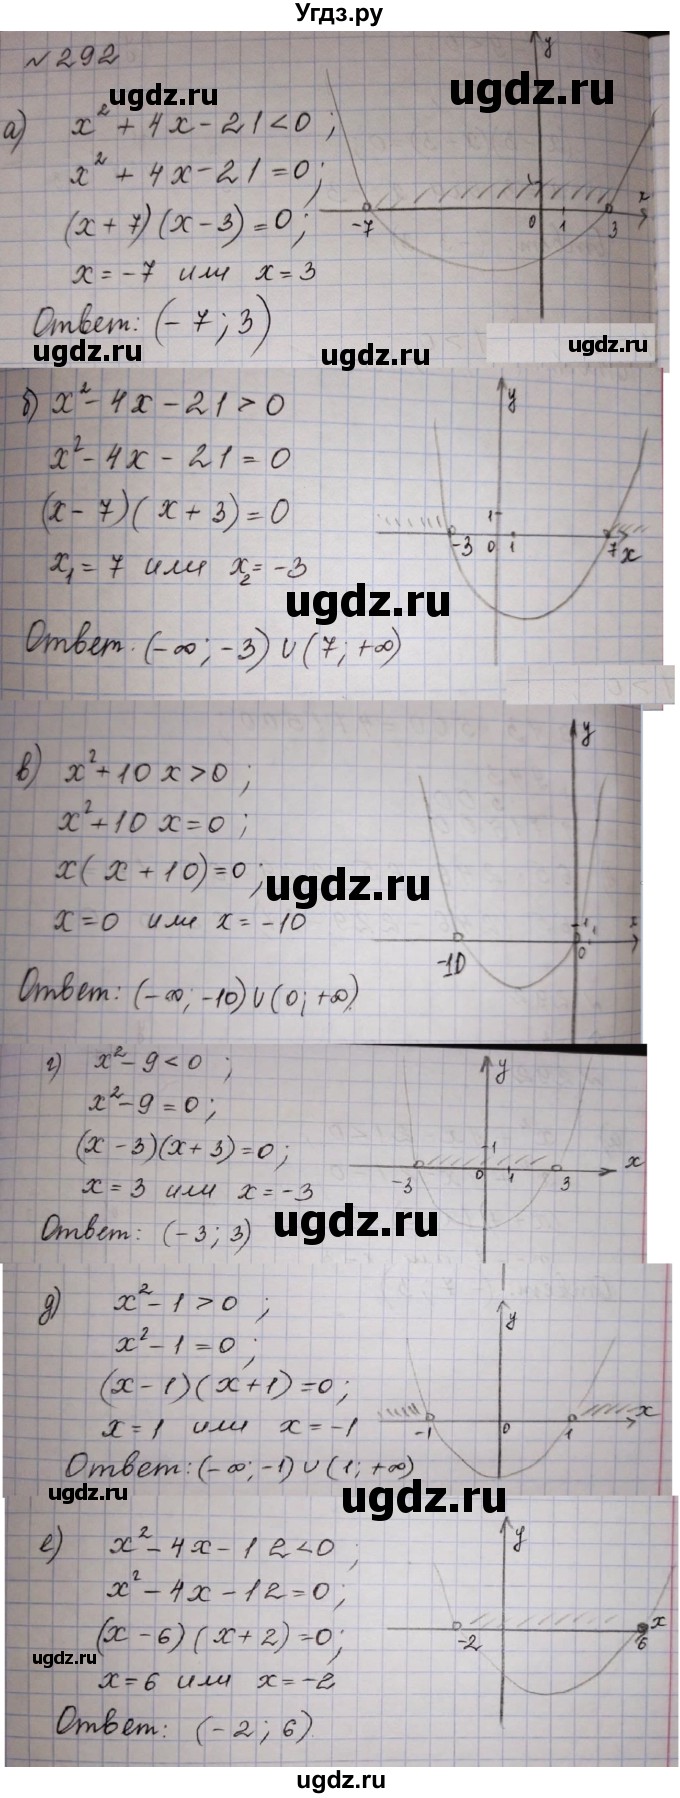 Угдз.ру
№292
ugdz.ru ugdz.ru
а) x² + 4x - 21 < 0 ;
x² + 4x - 21 = 0 ;
(x + 7)(x - 3) = 0 ;
x = -7 или x = 3
y
x
-7 0 1 3
Ответ: (-7; 3)
ugdz.ru ugdz.ru ugdz.ru
б) x² - 4x - 21 > 0
x² - 4x - 21 = 0
(x - 7)(x + 3) = 0
x₁ = 7 или x₂ = -3
y
1
-3 0 1 7 x
ugdz.ru
Ответ. (-∞; -3) ∪ (7; +∞)
в) x² + 10x > 0 ;
x² + 10x = 0 ;
x(x + 10) = 0 ;
x = 0 или x = -10
y
1 x
-10 0 1
ugdz.ru
Ответ: (-∞; -10) ∪ (0; +∞).
г) x² - 9 < 0 ;
x² - 9 = 0 ;
(x - 3)(x + 3) = 0 ;
x = 3 или x = -3
y
1 x
-3 0 1 3
Ответ: (-3; 3)
ugdz.ru
д) x² - 1 > 0 ;
x² - 1 = 0 ;
(x - 1)(x + 1) = 0 ;
x = 1 или x = -1
y
x
-1 0 1
Ответ: (-∞; -1) ∪ (1; +∞)
ugdz.ru ugdz.ru
е) x² - 4x - 12 < 0 ;
x² - 4x - 12 = 0 ;
(x - 6)(x + 2) = 0 ;
x = 6 или x = -2
y
x
-2 6
ugdz.ru
Ответ: (-2; 6).
ugdz.ru
ugdz.ru